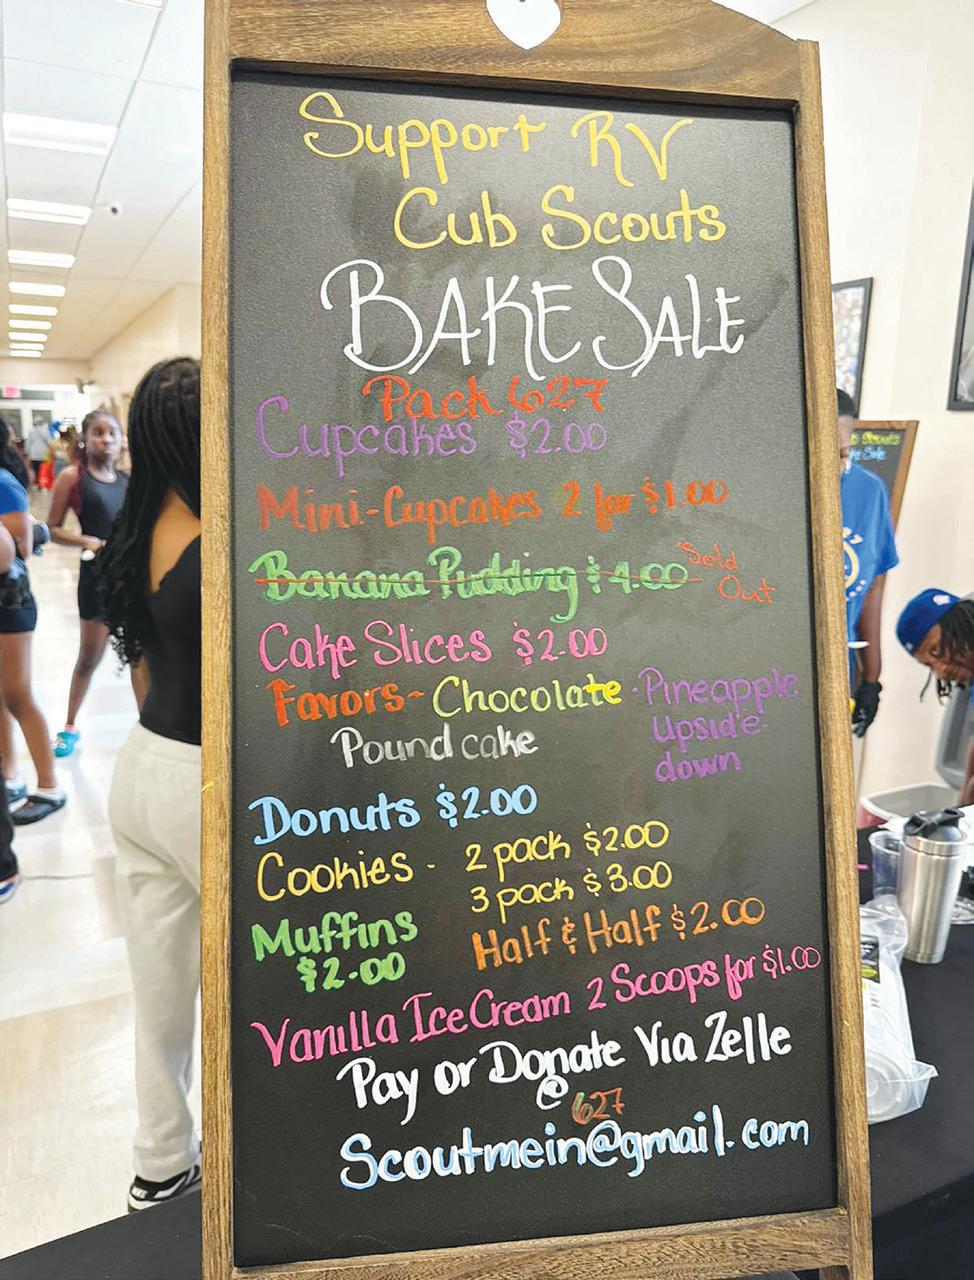 Support RV
Cub Scouts
BAKE SALE
Pack 627
Cupcakes $2.00
Mini-Cupcakes 2 for $1.00
Banana Pudding $4.00 Sold Out
Cake Slices $2.00
Favors~ Chocolate · Pineapple
Upside-
down
Pound cake
Donuts $2.00
Cookies - 2 pack $2.00
3 pack $3.00
Muffins
$2.00
Half & Half $2.00
Vanilla Ice Cream 2 Scoops for $1.00
Pay or Donate Via Zelle
@
627
Scoutmein@gmail.com